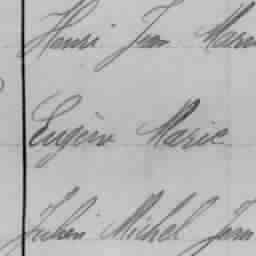 Henri Jean Marie
Eugène Marie
Julien Michel Jean